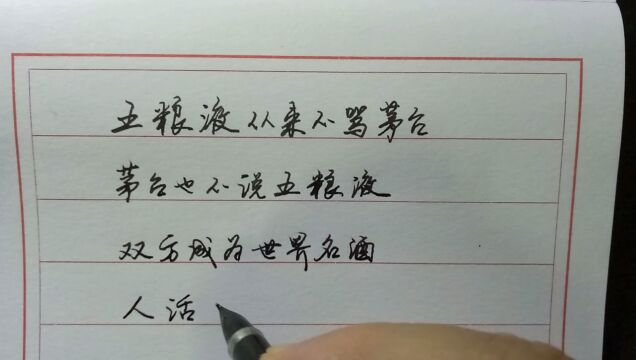 五粮液从来不骂茅台
茅台也不说五粮液
双方成为世界名酒
人活